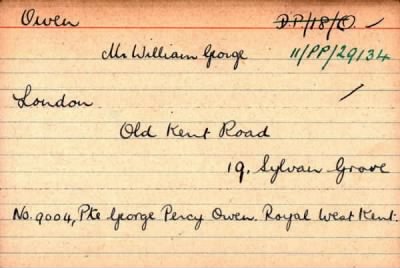 Owen DP/18/O.
Mr William George 11/PP/29134
London
Old Kent Road
19, Sylvan Grove
No. 9004, Pte George Percy Owen. Royal West Kent.